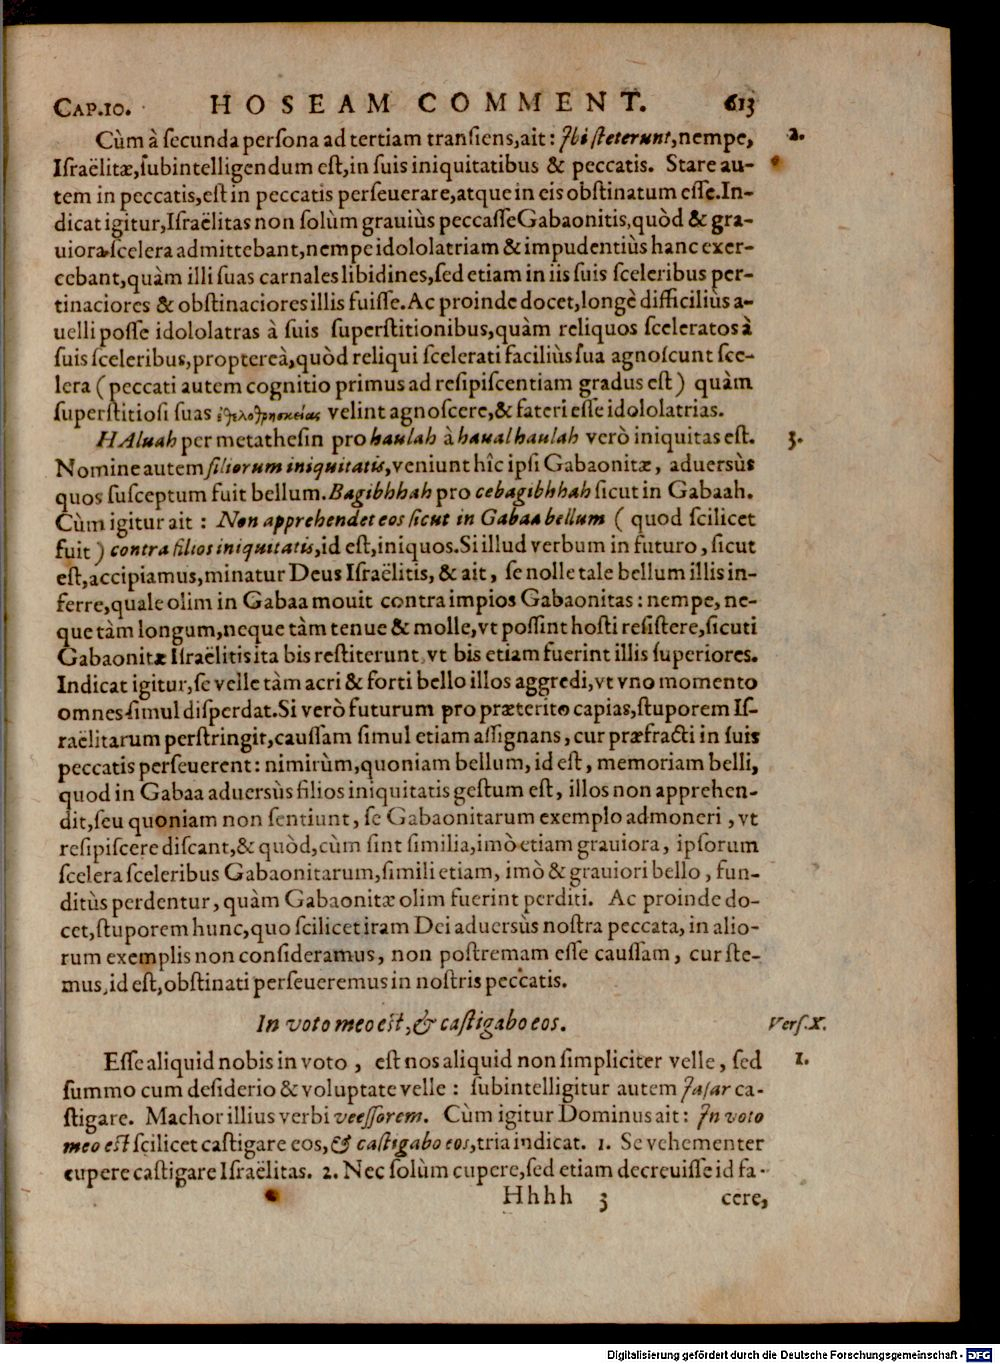 CAP.10. HOSEAM COMMENT. 613
Cùm à ſecunda perſona ad tertiam tranſiens,ait: Ibi ſteterunt,nempe, 2.
Iſraëlitæ,ſubintelligendum eſt,in ſuis iniquitatibus & peccatis. Stare au-
tem in peccatis,eſt in peccatis perſeuerare,atque in eis obſtinatum eſſe.In-
dicat igitur,Iſraëlitas non ſolùm grauiùs peccaſſe Gabaonitis,quòd & gra-
uiora ſcelera admittebant,nempe idololatriam & impudentiùs hanc exer-
cebant,quàm illi ſuas carnales libidines,ſed etiam in iis ſuis ſceleribus per-
tinaciores & obſtinaciores illis fuiſſe.Ac proinde docet,longè difficiliùs a-
uelli poſſe idololatras à ſuis ſuperſtitionibus,quàm reliquos ſceleratos à
ſuis ſceleribus,propterea,quòd reliqui ſcelerati faciliùs ſua agnoſcunt ſce-
lera (peccati autem cognitio primus ad reſipiſcentiam gradus eſt) quàm
ſuperſtitioſi ſuas ἐθελοθρησκείας velint agnoſcere,& fateri eſſe idololatrias.
HAluah per metatheſin pro haulah à haual haulah verò iniquitas eſt. 3.
Nomine autem filiorum iniquitatis,veniunt hîc ipſi Gabaonitæ, aduersùs
quos ſuſceptum fuit bellum.Bagibhhah pro cebagibhhah ſicut in Gabaah.
Cùm igitur ait : Non apprehendet eos ſicut in Gabaa bellum ( quod ſcilicet
fuit ) contra filios iniquitatis,id eſt,iniquos.Si illud verbum in futuro, ſicut
eſt,accipiamus,minatur Deus Iſraëlitis, & ait, ſe nolle tale bellum illis in-
ferre,quale olim in Gabaa mouit contra impios Gabaonitas : nempe, ne-
que tàm longum,neque tàm tenue & molle,vt poſſint hoſti reſiſtere,ſicuti
Gabaonitæ Iſraëlitis ita bis reſtiterunt, vt bis etiam fuerint illis ſuperiores.
Indicat igitur,ſe velle tàm acri & forti bello illos aggredi,vt vno momento
omnes ſimul diſperdat.Si verò futurum pro præterito capias,ſtuporem Iſ-
raëlitarum perſtringit,cauſſam ſimul etiam aſſignans, cur præfracti in ſuis
peccatis perſeuerent: nimirùm,quoniam bellum, id eſt, memoriam belli,
quod in Gabaa aduersùs filios iniquitatis geſtum eſt, illos non apprehen-
dit,ſeu quoniam non ſentiunt, ſe Gabaonitarum exemplo admoneri, vt
reſipiſcere diſcant,& quòd,cùm ſint ſimilia,imò etiam grauiora, ipſorum
ſcelera ſceleribus Gabaonitarum,ſimili etiam, imò & grauiori bello, fun-
ditùs perdentur, quàm Gabaonitæ olim fuerint perditi. Ac proinde do-
cet,ſtuporem hunc,quo ſcilicet iram Dei aduersùs noſtra peccata, in alio-
rum exemplis non conſideramus, non poſtremam eſſe cauſſam, cur ſte-
mus,id eſt,obſtinati perſeueremus in noſtris peccatis.
In voto meo eſt,& caſtigabo eos. Verſ.X.
Eſſe aliquid nobis in voto, eſt nos aliquid non ſimpliciter velle, ſed 1.
ſummo cum deſiderio & voluptate velle : ſubintelligitur autem Jaſar ca-
ſtigare. Machor illius verbi veeſſorem. Cùm igitur Dominus ait: In voto
meo eſt ſcilicet caſtigare eos,& caſtigabo eos,tria indicat. 1. Se vehementer
cupere caſtigare Iſraëlitas. 2. Nec ſolùm cupere,ſed etiam decreuiſſe id fa-
Hhhh 3 cere,
Digitalisierung gefördert durch die Deutsche Forschungsgemeinschaft - DFG